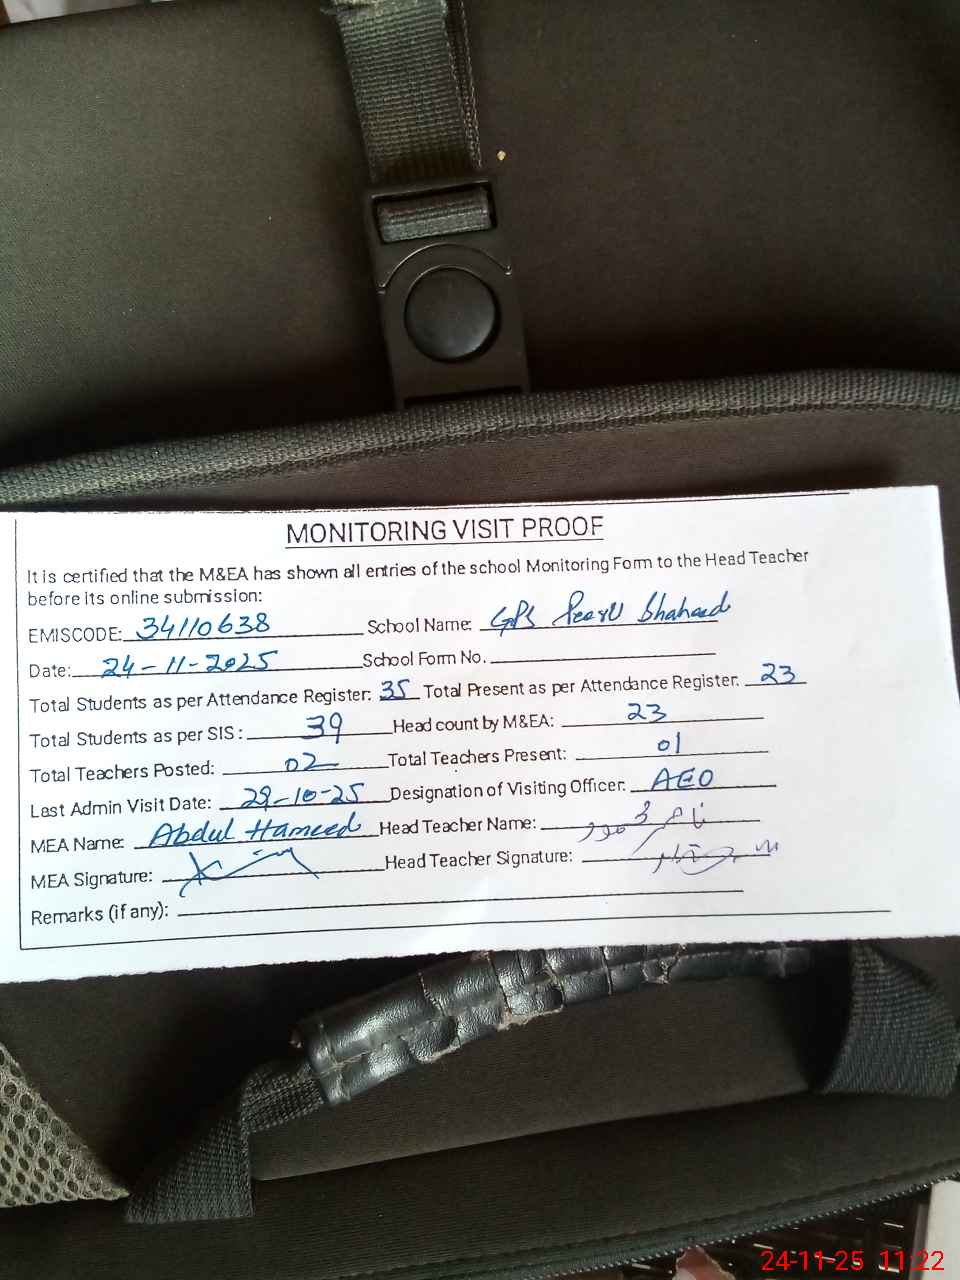 MONITORING VISIT PROOF
It is certified that the M&EA has shown all entries of the school Monitoring Form to the Head Teacher
before its online submission:
EMISCODE: 34110638 School Name: GPS Shaheed
Date: 24-11-2025 School Form No.
Total Students as per Attendance Register: 35 Total Present as per Attendance Register: 23
Total Students as per SIS: 39 Head count by M&EA: 23
Total Teachers Posted: 02 Total Teachers Present: 01
Last Admin Visit Date: 29-10-25 Designation of Visiting Officer: AEO
MEA Name: Abdul Hameed Head Teacher Name:
MEA Signature: Head Teacher Signature:
Remarks (if any):
24-11-25 11:22